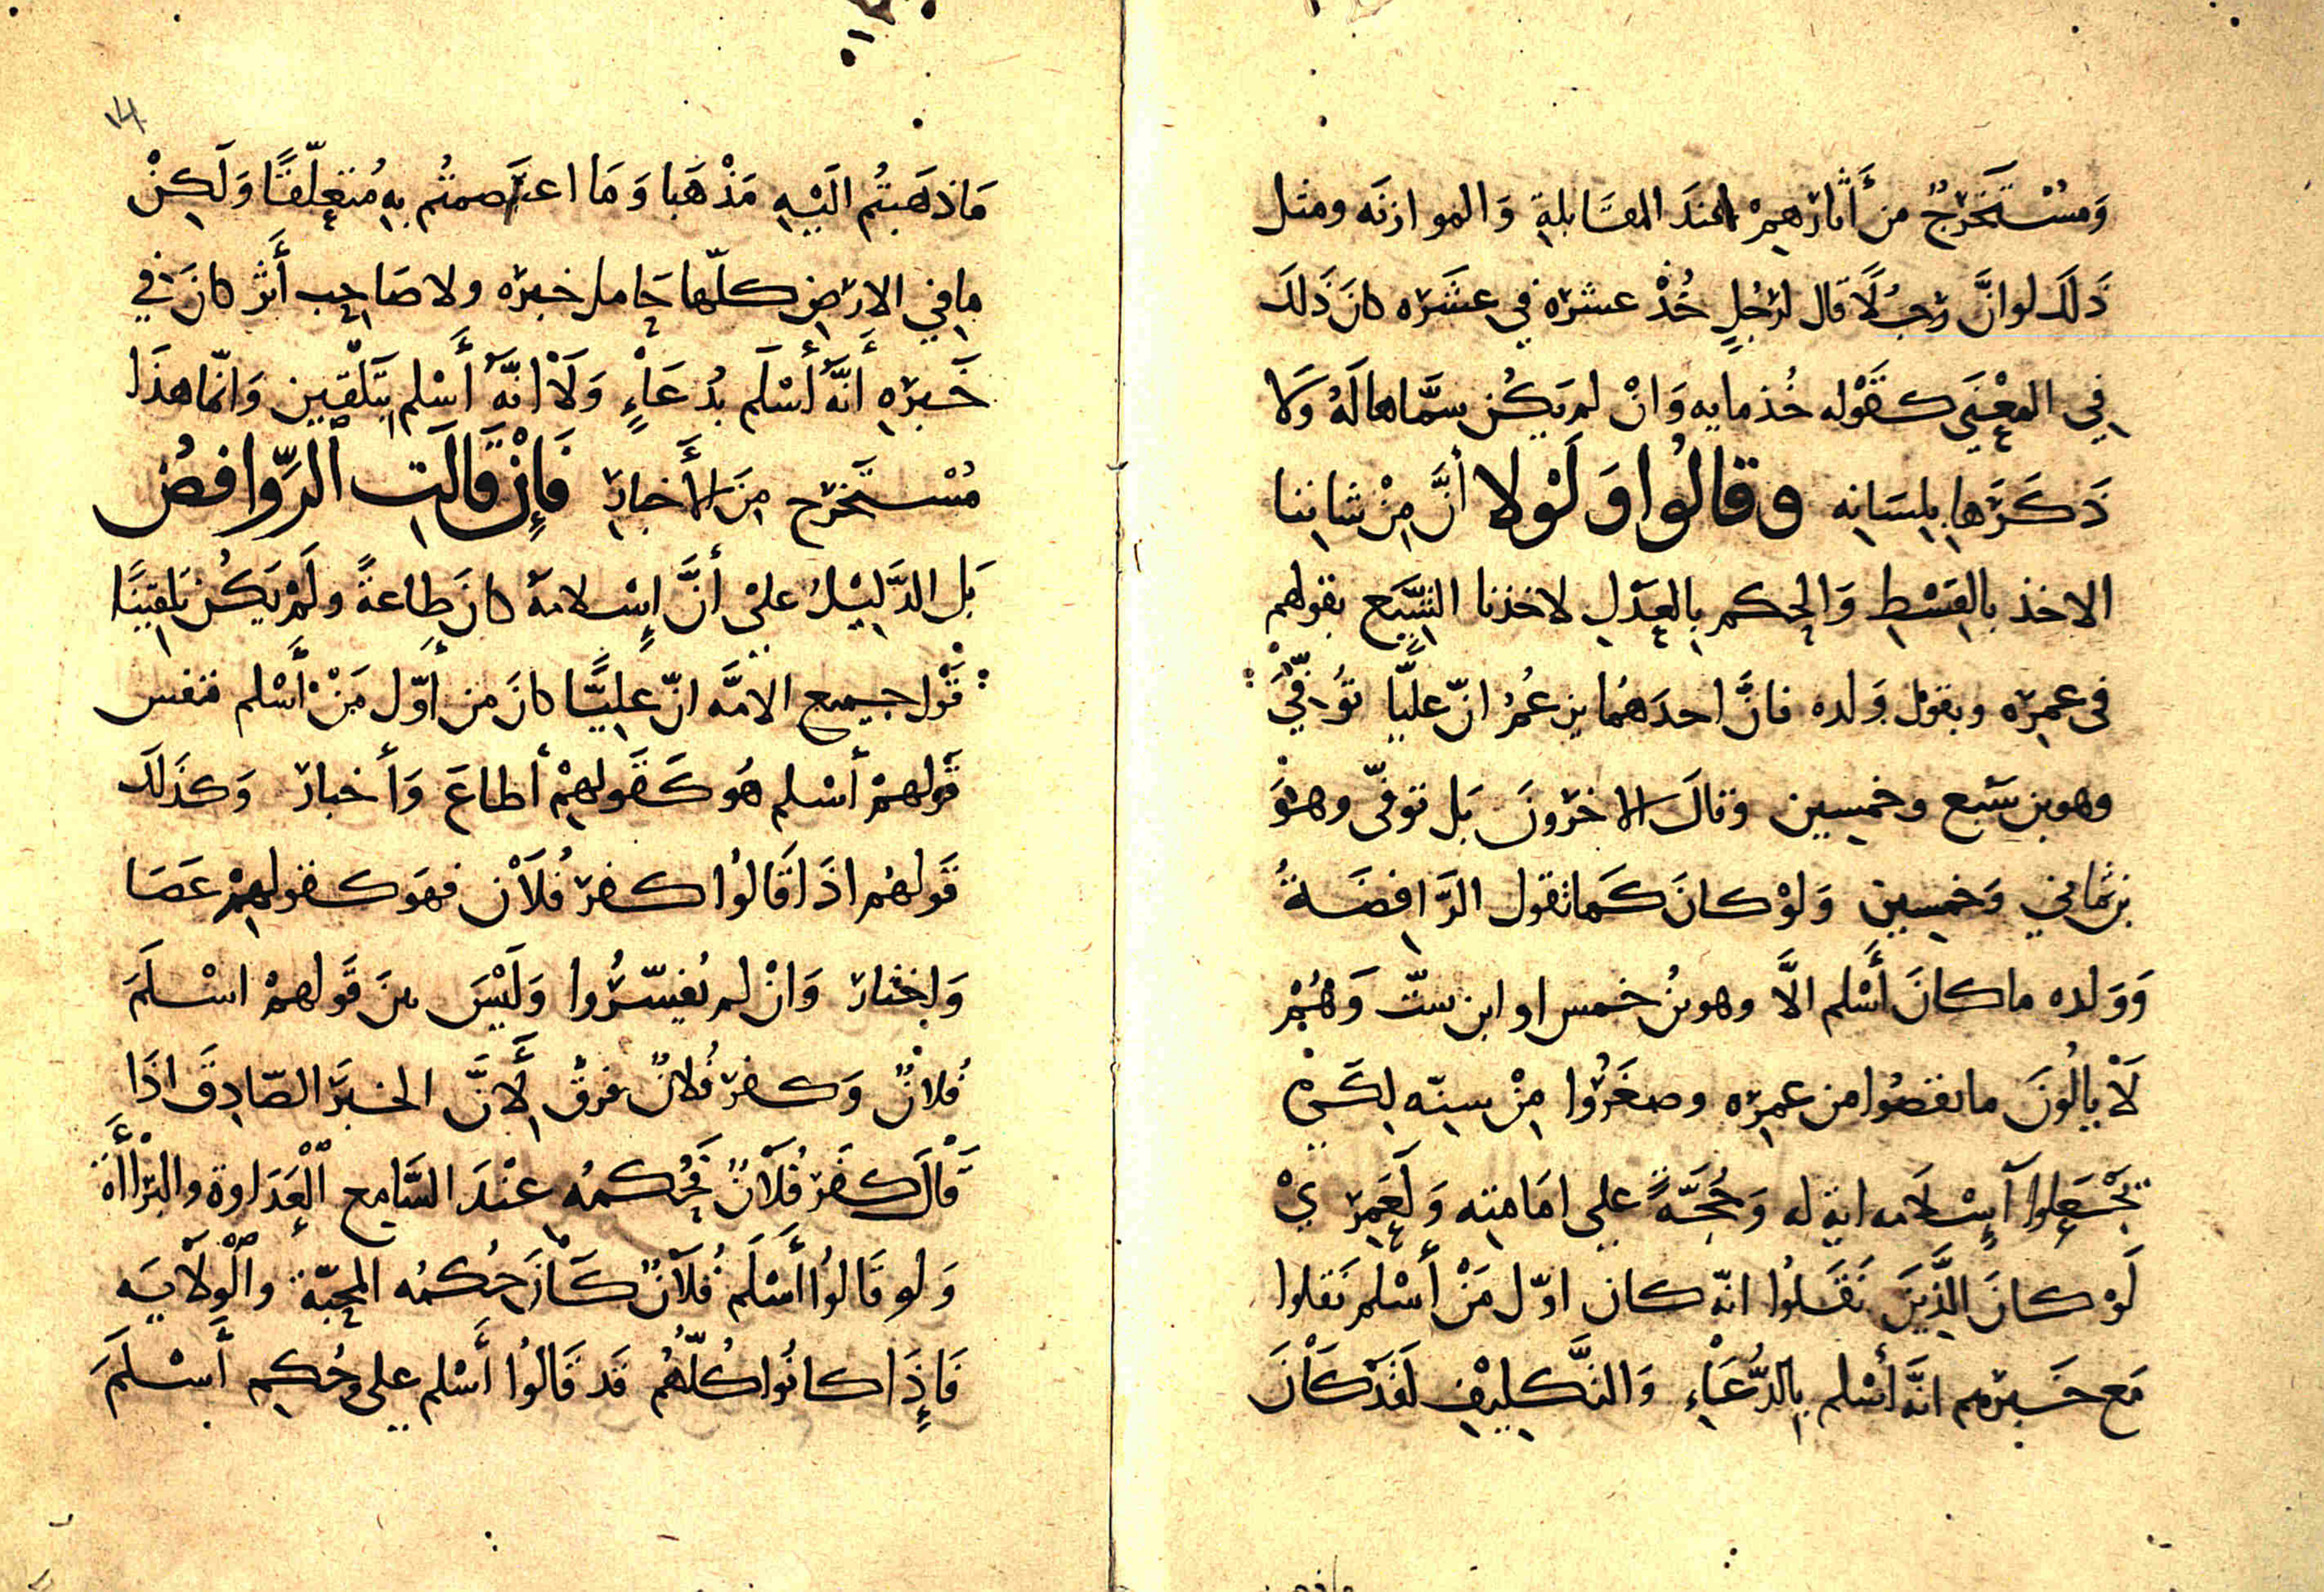 وَمُسْتَخْرَجٌ من أَثارهِمْ عندَ المقَابلةِ وَالموازنَه ومثل
ذَلكَ لوانَّ رجُلًا قال لرَجُلٍ خُذْ عشره في عشَره كانَ ذَلكَ
فِي المعْنَي كقَوْله خُذ مايه وَانْ لم يَكُن سمَّاها لَهُ وَلا
ذَكَرَها بِلِسَانِه وقالُوا وَلَوْلا أنَّ مِنْ شاننِا
الاخذ بالقِسْطِ وَالحكم بِالعَدْلِ لاخذنا الشِّيَع بقولهم
فى عمِره وبقوْل وَلده فانَّ احدَهُما يزعُمُ انّ عليًّا تُوُفّيَ
وهو بن سَبع وخمسِين وقالَ الاخرُونَ بَل توفّى وهْوَ
بن ثماني وَخمسِين وَلوْ كانَ كَما تقول الرَّافِضَةُ
وَوَلده ما كانَ أَسْلم الَّا وهو بنُ خمس او ابن ستّ وَهُمْ
لَا يبالُونَ ما نقصُوا من عمِره وصغَّرُوا مِنْ سِنّه لِكَيْ
تجْعَلوا آسْلامه ايةً له وَحُجَّةً علي امَامتِه وَلَعَمِريْ
لَوْ كانَ الَّذِينَ نَقَلُوا انّه كان اوّل مَنْ أسْلم نَقلوا
مَع خَبرهم انَّه أسْلم بِالدُّعَاءِ وَالتَّكلِيْفِ لَقَدْ كَانَ
١٤
مَا ذهَبتُم الَيْهِ مَذْهَبا وَمَا اعتَصمتُم بِه مُتعلّقًا وَلَكِنْ
ما فِي الارَضِ كلّها حَامل خبره ولا صَاحِب أَثر كانَ فِي
خَبَرهِ أَنَّه أسْلَم بدُعَاءٍ وَلَا انَّه أَسْلم بتَلْقين وَانّما هذَا
مُسْتَخرَج مِنَ الأَخبار فَإِنْ قَالَتِ الرَّوافضُ
بَل الدَّلِيْلُ عليْ أنَّ إسْلامهُ كانَ طاعةً ولَمْ يَكُن تلقِينًا
قَوْل جميع الامَّه انّ عليًّا كانَ من أَوّل مَنْ أَسْلم فنفس
قَولهمْ أسْلم هُو كَقَولهِمْ أطاعَ وَأَخبار وَكذلَك
قَولهُم اذَا قَالُوا كفر فُلَان فهَو كقولهِمْ عَصَا
وَاختار وَانْ لم يُفسّرُوا وَلَيْسَ بينَ قَولهمْ اسْلَمَ
فُلانٌ وَكفر فُلانٌ فرقٌ لِأَنَّ الخبَرَ الصّادِقَ اذَا
قَالَ كفَر فُلَانٌ فحُكمُه عِنْدَ السَّامِع الْعَدَاوة والبرَاأَة
وَلو قَالُوا أَسْلَم فُلَانٌ كَانَ حُكمُه المحَبّة والْوِلَايَه
فَإِذَا كانُوا كُلّهُم قَد قَالُوا أَسْلم على وحُكِم أَسْلَمَ